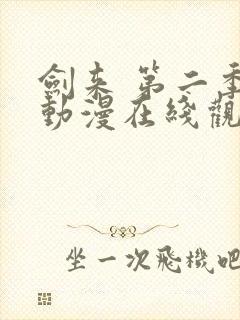 劍来 第二季
動漫在綫觀
坐一次飛機吧